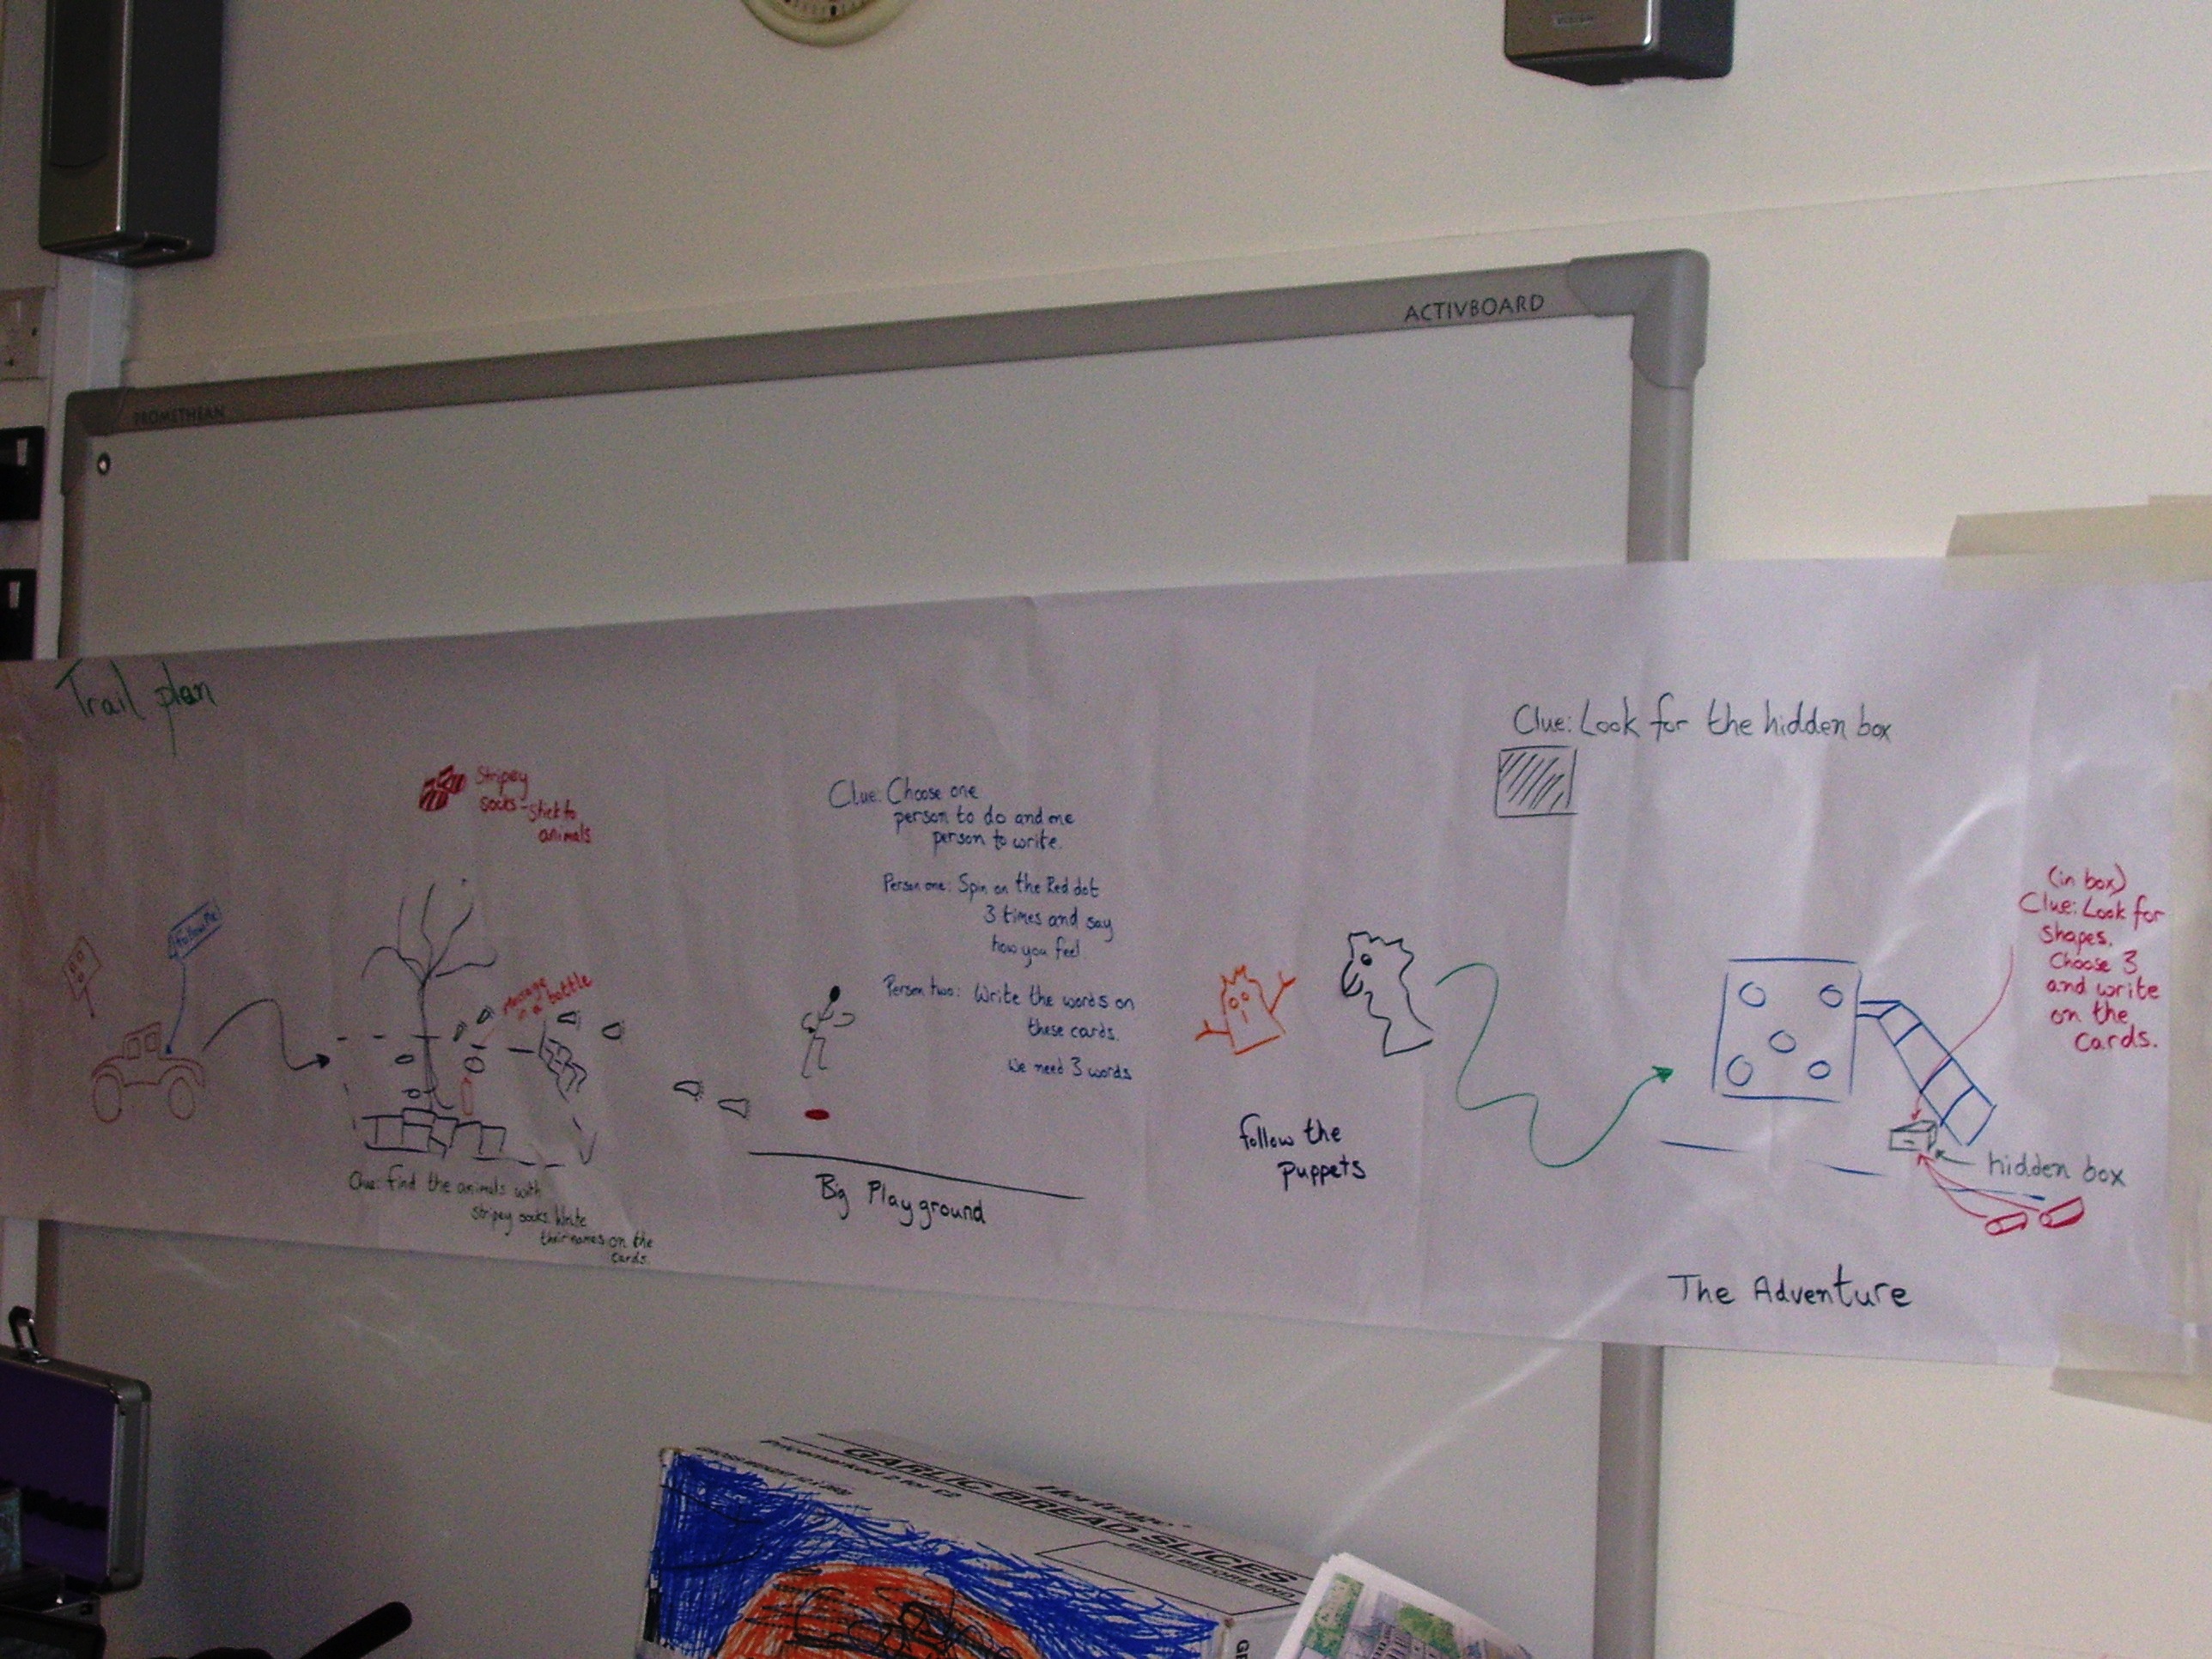 ACTIVBOARD
PROMETHEAN
Trail plan
Stripey
socks - stick to
animals
follow me
message
in a bottle
Clue: find the animals with
stripey socks. Write
their names on the
cards.
Clue: Choose one
person to do and one
person to write.
Person one: Spin on the Red dot
3 times and say
how you feel.
Person two: Write the words on
these cards.
We need 3 words
Big Playground
follow the
puppets
Clue: Look for the hidden box
(in box)
Clue: Look for
shapes.
Choose 3
and write
on the
cards.
hidden box
The Adventure
Heritage
GARLIC BREAD SLICES
BEST BEFORE END